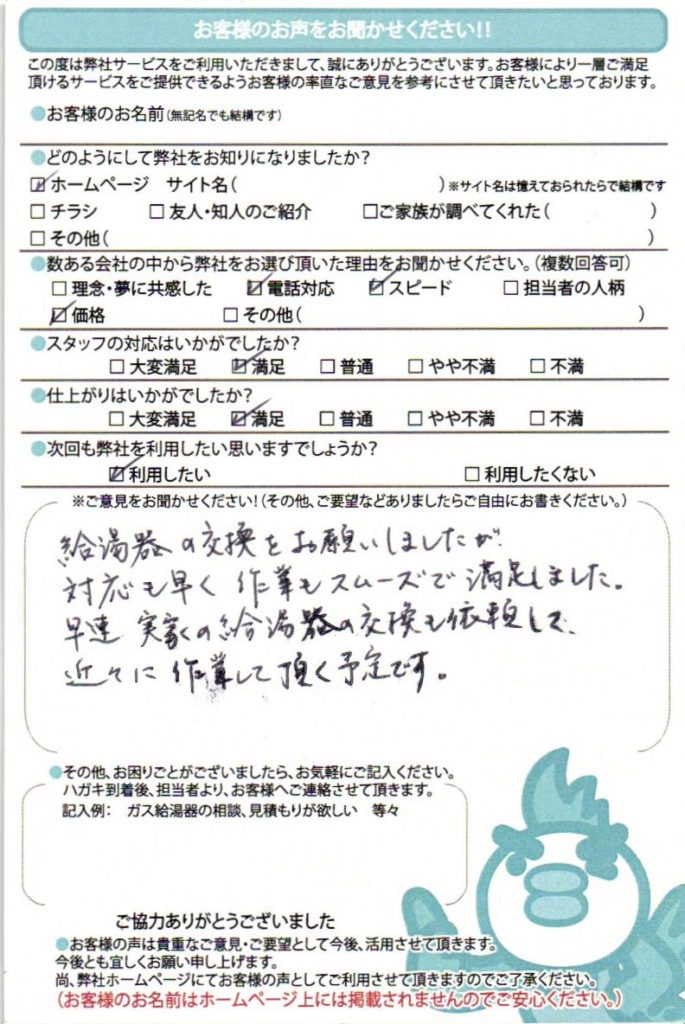 お客様のお声をお聞かせください!!
この度は弊社サービスをご利用いただきまして、誠にありがとうございます。お客様により一層ご満足
頂けるサービスをご提供できるようお客様の率直なご意見を参考にさせて頂きたいと思っております。
●お客様のお名前(無記名でも結構です)
●どのようにして弊社をお知りになりましたか?
☑ホームページ サイト名( )※サイト名は憶えておられたらで結構です
□チラシ □友人・知人のご紹介 □ご家族が調べてくれた( )
□その他( )
●数ある会社の中から弊社をお選び頂いた理由をお聞かせください。(複数回答可)
□理念・夢に共感した ☑電話対応 ☑スピード □担当者の人柄
☑価格 □その他( )
●スタッフの対応はいかがでしたか?
□大変満足 ☑満足 □普通 □やや不満 □不満
●仕上がりはいかがでしたか?
□大変満足 ☑満足 □普通 □やや不満 □不満
●次回も弊社を利用したい思いますでしょうか?
☑利用したい □利用したくない
※ご意見をお聞かせください!(その他、ご要望などありましたらご自由にお書きください。)
給湯器の交換をお願いしましたが
対応も早く作業もスムーズで満足しました。
早速実家の給湯器の交換も依頼して、
近々に作業して頂く予定です。
●その他、お困りごとがございましたら、お気軽にご記入ください。
ハガキ到着後、担当者より、お客様へご連絡させて頂きます。
記入例: ガス給湯器の相談、見積もりが欲しい 等々
ご協力ありがとうございました
●お客様の声は貴重なご意見・ご要望として今後、活用させて頂きます。
今後とも宜しくお願い申し上げます。
尚、弊社ホームページにてお客様の声としてご利用させて頂きますのでご了承ください。
(お客様のお名前はホームページ上には掲載されませんのでご安心ください。)